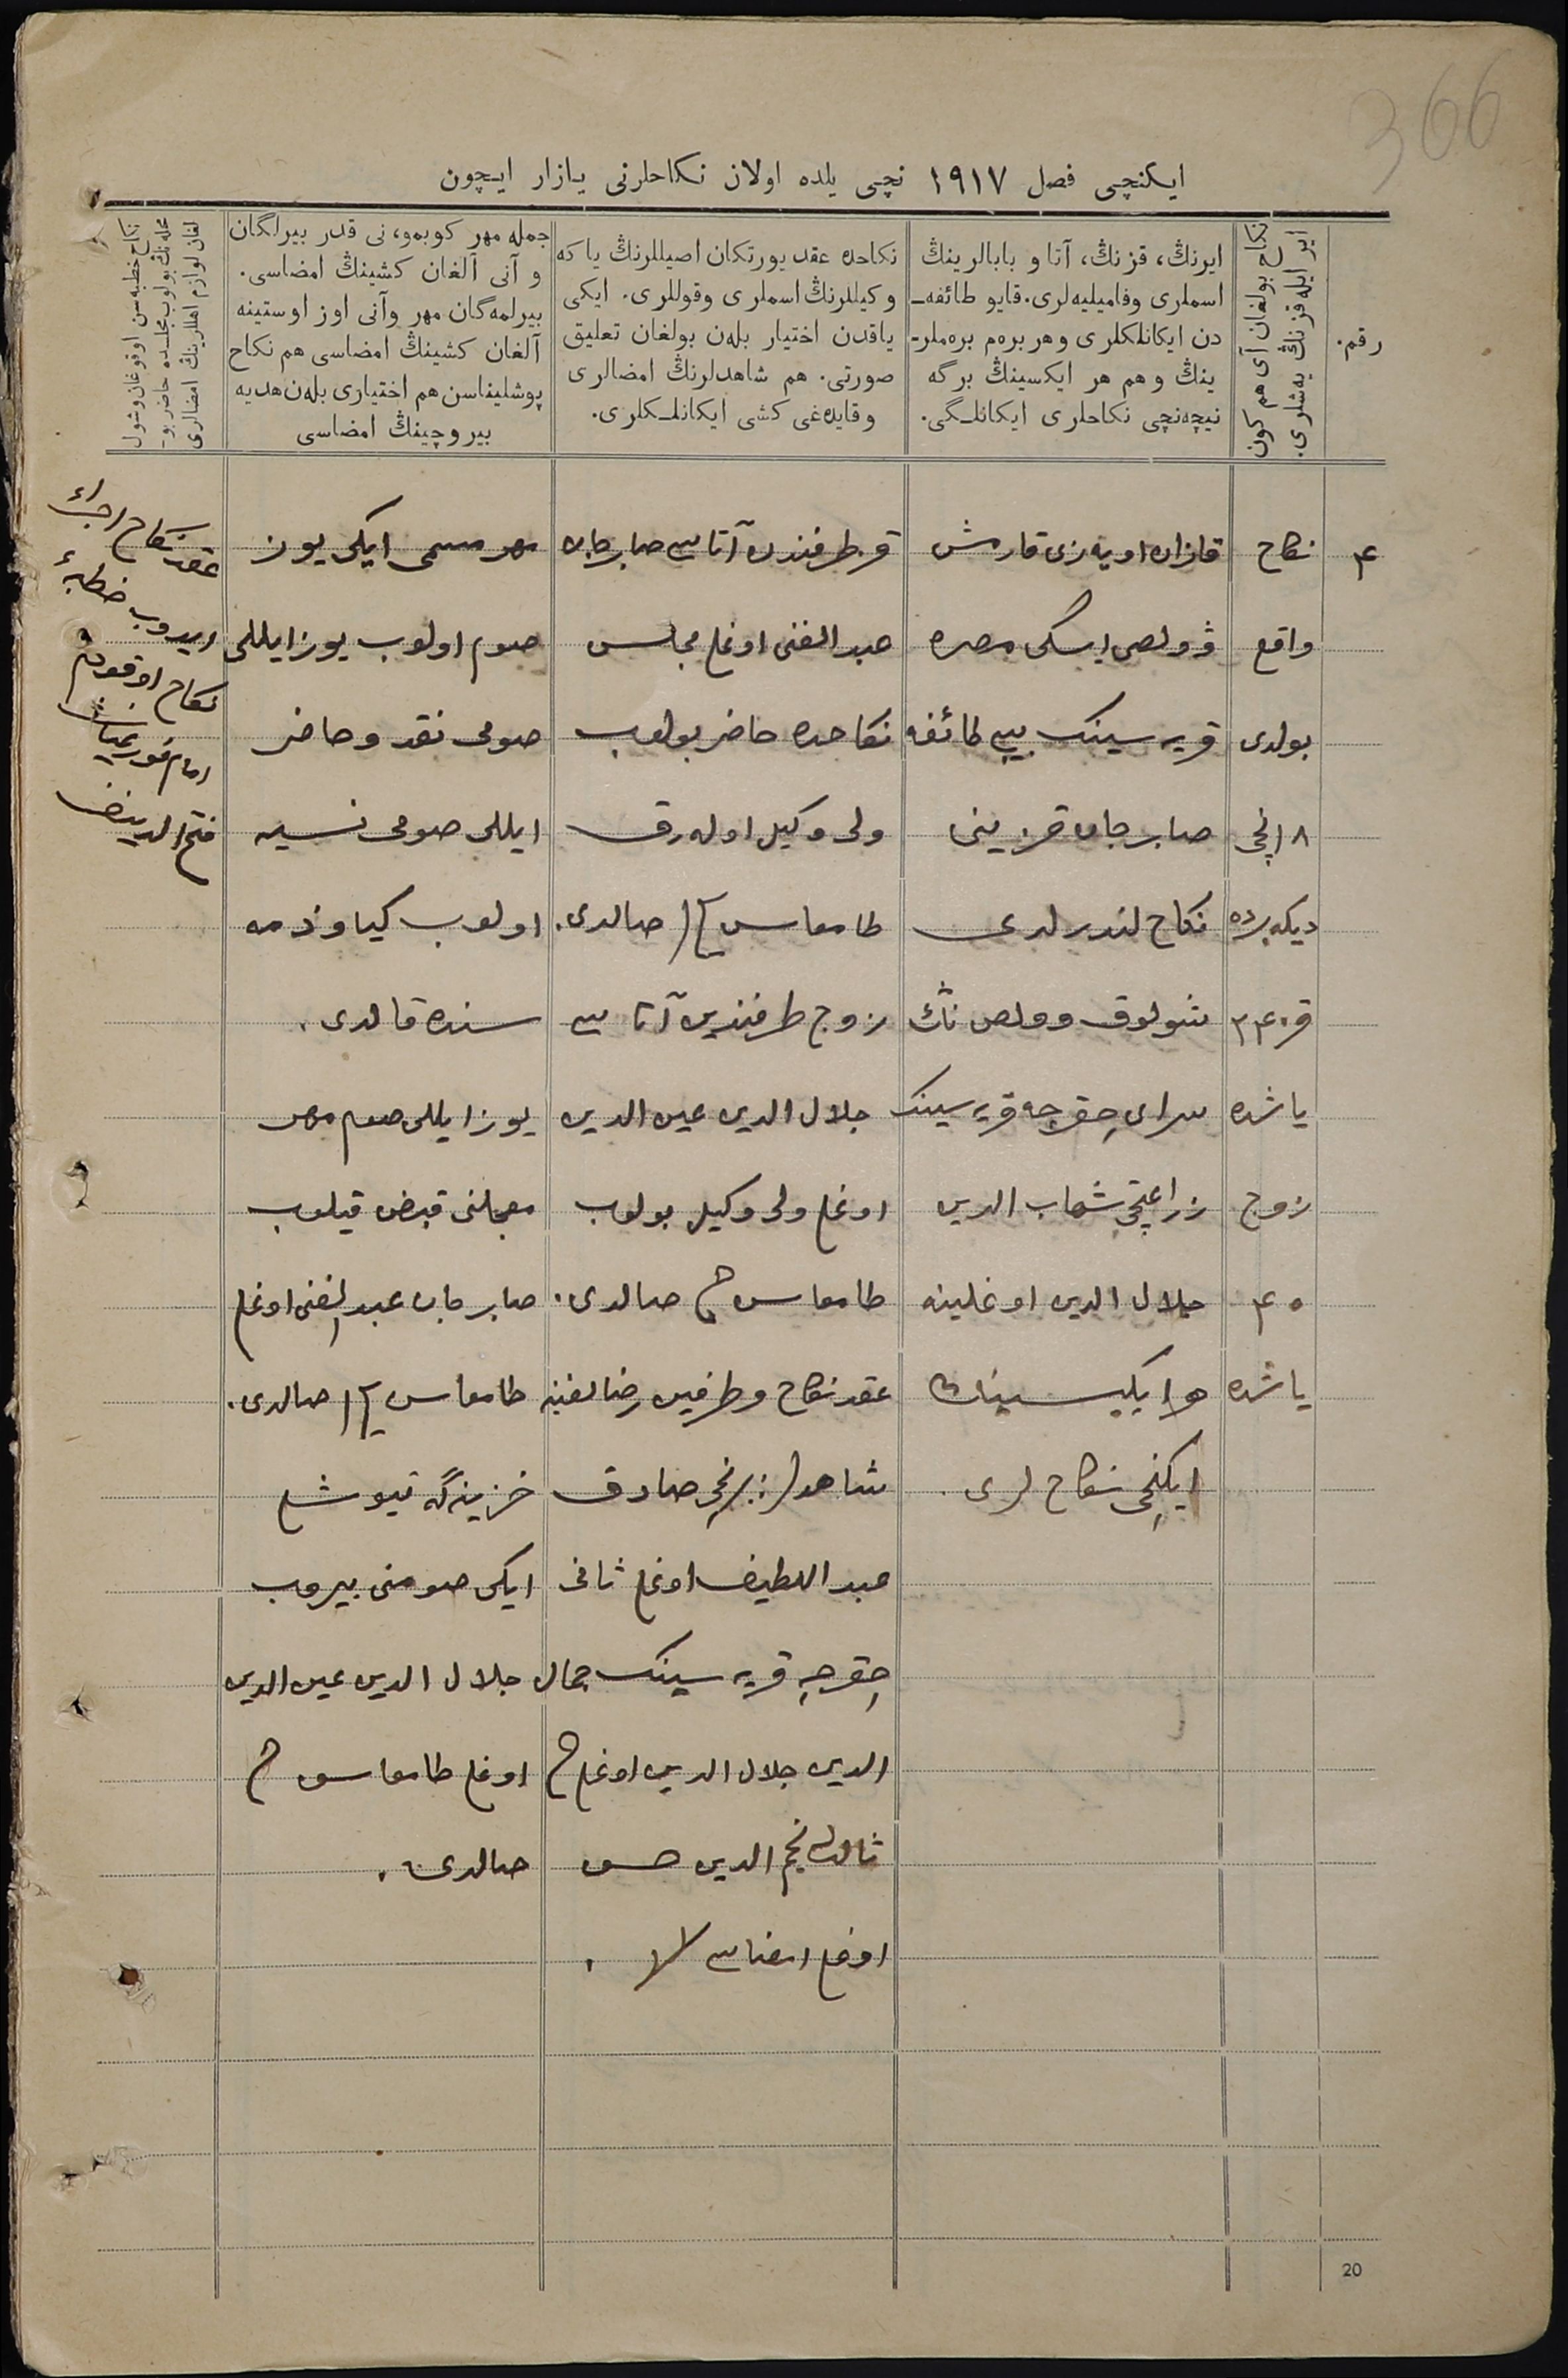 366
ایکنچی فصل ١٩١٧ نچی یلده اولان نکاحلرنی یازار ایچون
رقم.
نکاح بولغان آی هم کون
ایر ایله قزنڭ یەشلری.
ایرنڭ، قزنڭ، آتا و بابالرینڭ
اسملری وفامیلیەلری. قایو طائفه‌ـ
دن ایکانلکلری وهر برەم برەملر‌ـ
ینڭ وهم هر ایکسینڭ برگه
نیچەنچی نکاحلری ایکانلـگی.
نکاحده عقد یورتکان اصیللرنڭ یا که
وکیللرنڭ اسملری وقوللری. ایکی
یاقدن اختیار بلەن بولغان تعلیق
صورتی. هم شاهدلرنڭ امضالری
وقایدەغی کشی ایکانلـکلری.
جمله مهر کوبمو، نی قدر بیرلگان
و آنی آلغان کشینڭ امضاسی.
بیرلمەگان مهر وآنی اوز اوستینه
آلغان کشینڭ امضاسی هم نکاح
پوشلیناسن هم اختیاری بلەن هدیه
بیروچینڭ امضاسی
نکاح خطبەسن اوقوغان وشول
محلەنڭ بولوب مجلسده حاضر بو‌ـ
لغان لوازم اهللرینڭ امضالری
٤
نکاح
واقع
بولدی
١٨نچی
دیکەبرده
قز ٣٤
یاشده
زوج
٤٥
یاشده
قازان اویەزی قارمش
ڤولصی ایسکی مصره
قریەسینک بی طائفه
صابرجان قزینی
نکاح لندرلدی
شولوق وولص نڭ
سرای چقرچه قریەسینک
زراعتچی شهاب الدین
جلال الدین اوغلینه
هر ایکیسینڭ
ایکنچی نکاح لری.
قز طرفندن آتاسی صابرجان
عبد الغنی اوغلی مجلس
نکاحده حاضر بولوب
ولی وکیل اولەرق
طامغاسن صالدی.
زوج طرفندین آتاسی
جلال الدین عین الدین
اوغلی ولی وکیل بولوب
طامغاسن صالدی.
عقد نکاح وطرفین رضالغینه
شاهدلر: برنچی صادق
عبد اللطیف اوغلی ثانی
چقرچه قریەسینک جمال
الدین جلال الدین اوغلی
ثالث نجم الدین حسن
اوغلی امضاسی
مهر مسمی ایکی یوز
صوم اولوب یوز ایللی
صومی نقد وحاضر
ایللی صومی نسیه
اولوب کیاو ذمه
سنده قالدی.
یوز ایللی صوم مهر
معجلنی قبض قیلوب
صابرجان عبد الغنی اوغلی
طامغاسن صالدی.
خزینەگه تیوشلی
ایکی صومنی بیروب
جلال الدین عین الدین
اوغلی طامغاسن
صالدی.
عقد نکاح اجراء
ایدوب خطبهٔ
نکاح اوقودم
امام
فتح الدین
20